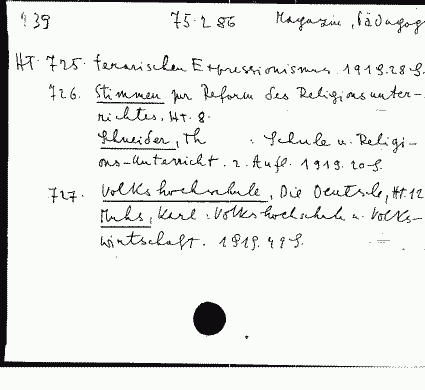 139 75.2.86 Magazin, Pädagog
HT. 725. terarischen Expressionismus. 1919. 28 S.
726. Stimmen zur Reform des Religionsunter-
richtes. Ht. 8.
Schneider, Th : Schule u. Religi-
ons-Unterricht. 2. Aufl. 1919. 20 S.
727. Volkshochschule, Die Deutsche, Ht. 12
Muhs, Karl : Volkshochschule u. Volks-
wirtschaft. 1919. 49 S.